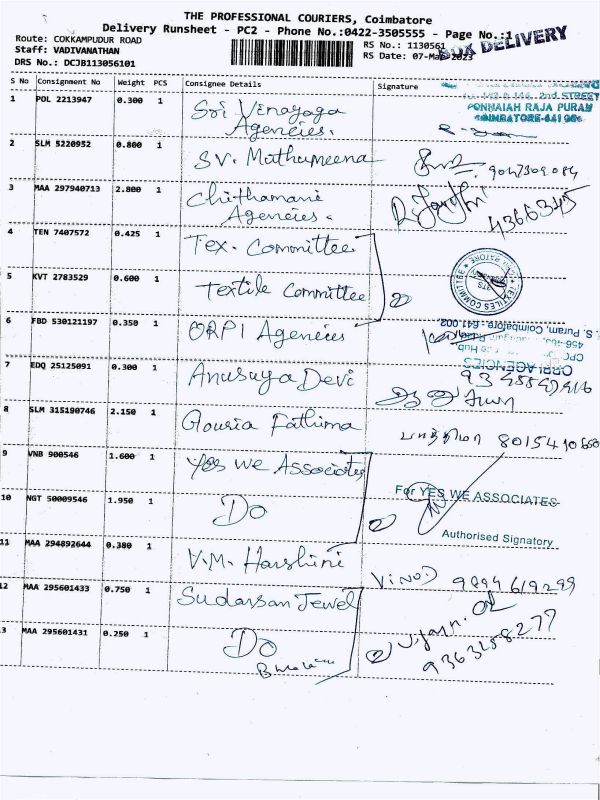 THE PROFESSIONAL COURIERS, Coimbatore
Delivery Runsheet - PC2 - Phone No.:0422-3505555 - Page No.:1
Route: COKKAMPUDUR ROAD
RS No.: 1130561
BOX DELIVERY
Staff: VADIVANATHAN
RS Date: 07-Mar-2023
DRS No.: DCJB113056101
S No Consignment No Weight PCS Consignee Details Signature
2nd. STREET
PONNAIAH RAJA PURAM
COIMBATORE-641 001
1 POL 2213947 0.300 1 Sri Vinayaga
Agencies.
2 SLM 5220952 0.800 1 SV. Muthumeena
9047309084
3 MAA 297940713 2.800 1 Chithamani
Agencies.
4366345
4 TEN 7407572 0.425 1 Tex. Committee
TEXTILES COMMITTEE
5 KVT 2783529 0.600 1 Textile Committee
2
6 FBD 530121197 0.350 1 ORPI Agencies
S. Puram, Coimbatore - 641 002
ORPI AGENCIES
7 EDQ 25125091 0.300 1 Anusuya Devi
8 SLM 315190746 2.150 1 Gouria Fathima
பாத்திமா 8015410650
9 VNB 900546 1.600 1 Yes We Associates
For YES WE ASSOCIATES
10 NGT 50009546 1.950 1 Do
2
Authorised Signatory
11 MAA 294892644 0.380 1 V.M. Harshini
Vinod 9894619299
12 MAA 295601433 0.750 1 Sudarsan Jewel
13 MAA 295601431 0.250 1 Do
2
9363258277